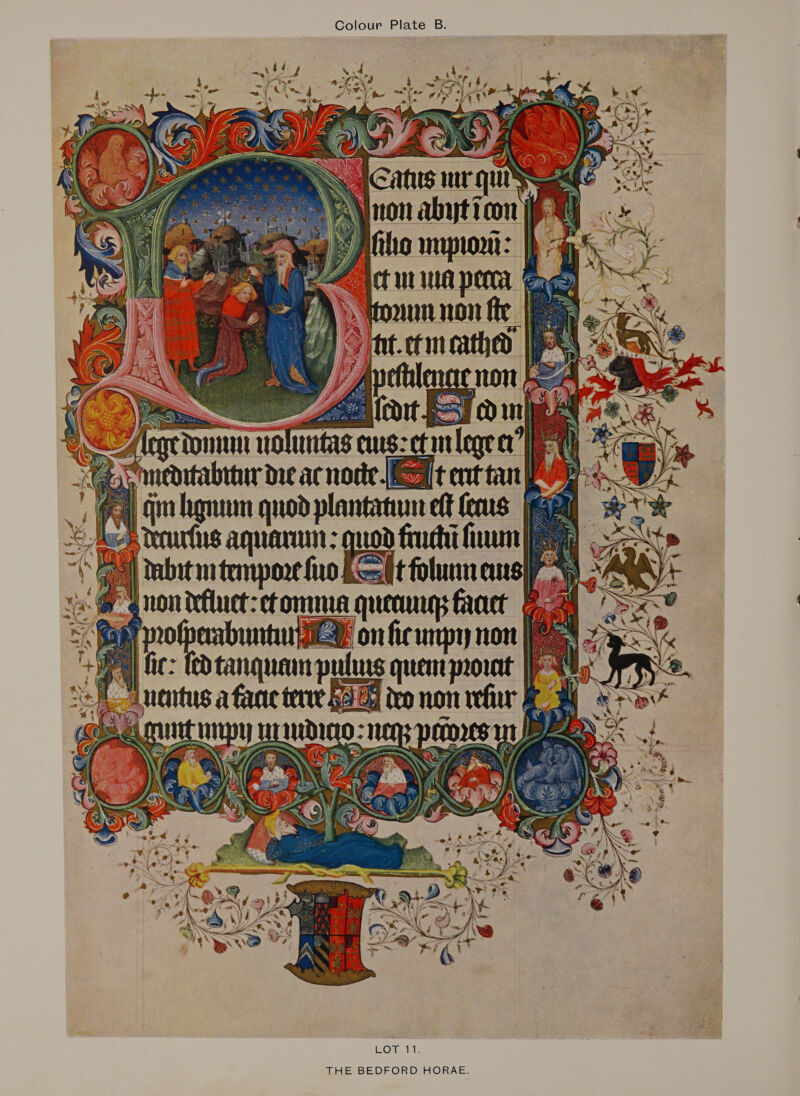 Colour Plate B.
Eatus uir qui
non abijt i con
silio impiorū:
et in uia pecca
torum non ste
tit. et in cathed
pestilencie non
sedit. S ed in
lege domini uoluntas eius: et in lege ei
meditabitur die ac nocte. E t erit tan
qm lignum quod plantatum est secus
decursus aquarum: quod fructū suum
dabit in tempore suo E t folium eius
non defluet: et omnia quecunqz faciet
prosperabuntur N on sic impij non
sic: sed tanquam puluis quem proicit
uentus a facie terre I deo non resur
gunt impij in iudicio: neqz pctores in
LOT 11.
THE BEDFORD HORAE.